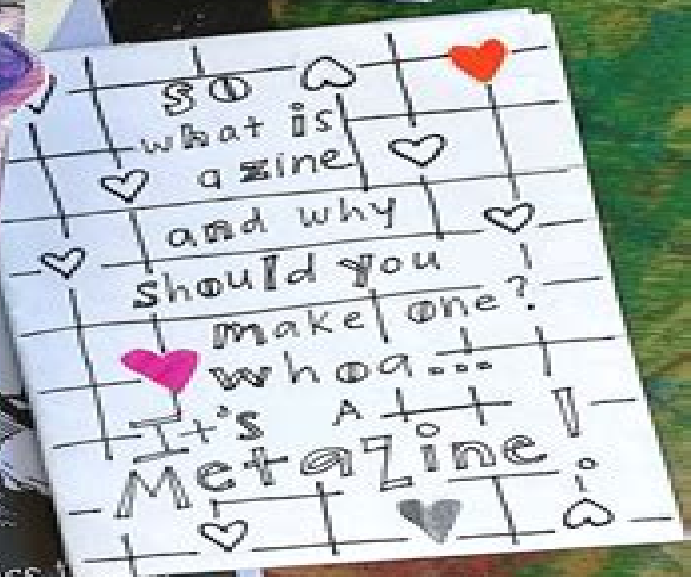 so
what is
a zine
and why
should you
make one?
whoa...
It's A
MetaZine!